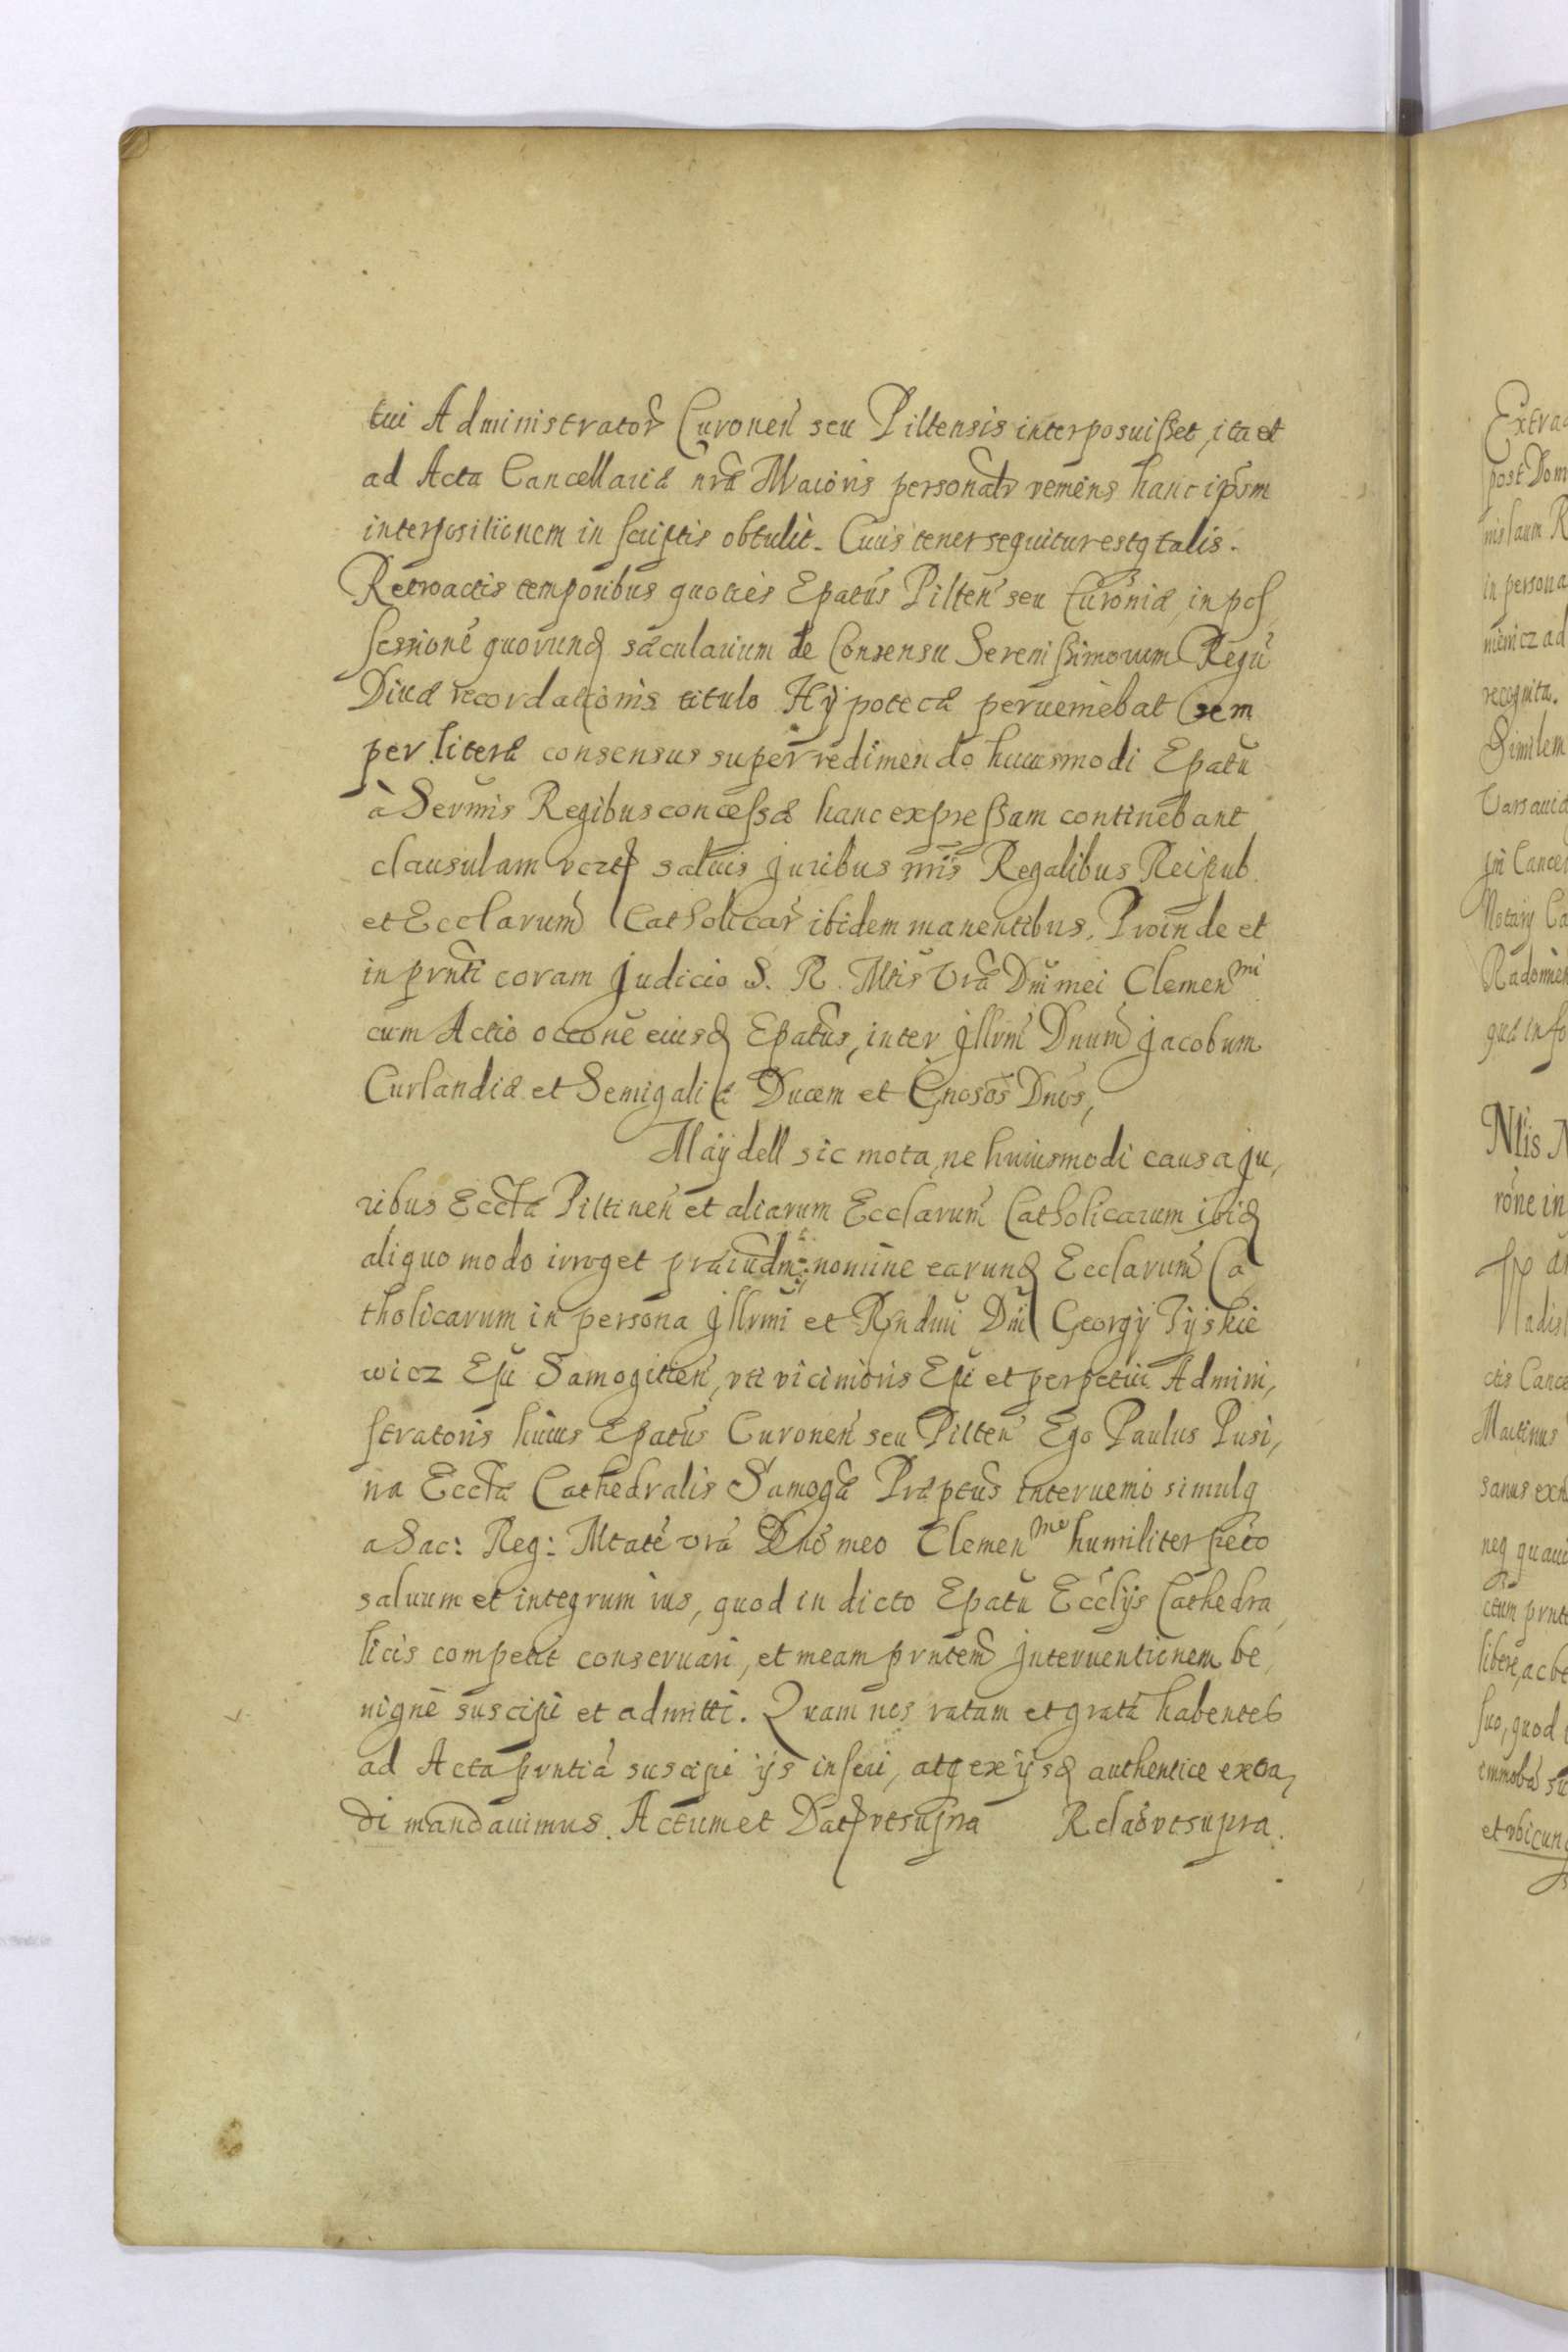 tui Administrator̃ Curonen̄ seu Piltensis interposuißet, ita et
ad Acta Cancellariæ nr̃æ Maioris personalr̃ veniens hanc ipsm̃
interpositionem in scriptis obtulit. Cuius tenor sequitur estq talis.
Retroactis temporibus quoties Epatus Pilten̄ seu Curoniæ, in pos,
sessionē quorund sæcularium de Consensu Serenißimorum Regū
Divæ recordationis titulo Hÿpotecæ perveniebat sem
per literæ consensus super redimendo huiusmodi Epatū
à Sermis Regibus conceßæ hanc expreßam continebant
clausulam vert salvis juribus nr̃is Regalibus Reipub.
et Ecclarum̃ Catholicar̃ ibidem manentibus. Proinde et
in prnti coram Judicio S. R. Mtis Vræ Dni mei Clemen mi
cum Actio occone eiusd Epatus, inter Jllrm̃ Dnum̃ Jacobum
Curlandiæ et Semigaliæ Ducem et Gnosos Dnos,
Maÿdell sic mota, ne huiusmodi causa ju,
ribus Ecclæ Piltinen̄ et aliarum Ecclarum̃ Catholicarum ibid
aliquo modo irroget præiudm̃: nomine earund Ecclarum̃ Ca
tholicarum in persona Jllrmi et Rndmi Dni Georgÿ Tÿskie
wicz Epi Samogitien̄, uti vicinioris Epi et perpetui Admini,
stratoris huius Epatus Curonen̄ seu Pilten̄ Ego Paulus Pusi,
na Ecclæ Cathedralis Samogæ Præptus intervenio simulq
a Sac: Reg: Mtate vra Dno meo Clemen mo humiliter peto
salvum et integrum ius, quod in dicto Epatu Ecclÿs Cathedra
licis competit conservari, et meam prntem Interventionem be,
nignè suscipi et admitti. Quam nos ratam et gratā habentes
ad Acta prntia suscipi ÿs inseri, atq ex ÿsd authentice extra,
di mandavimus. Actum et Dat ut supra Relao ut supra.